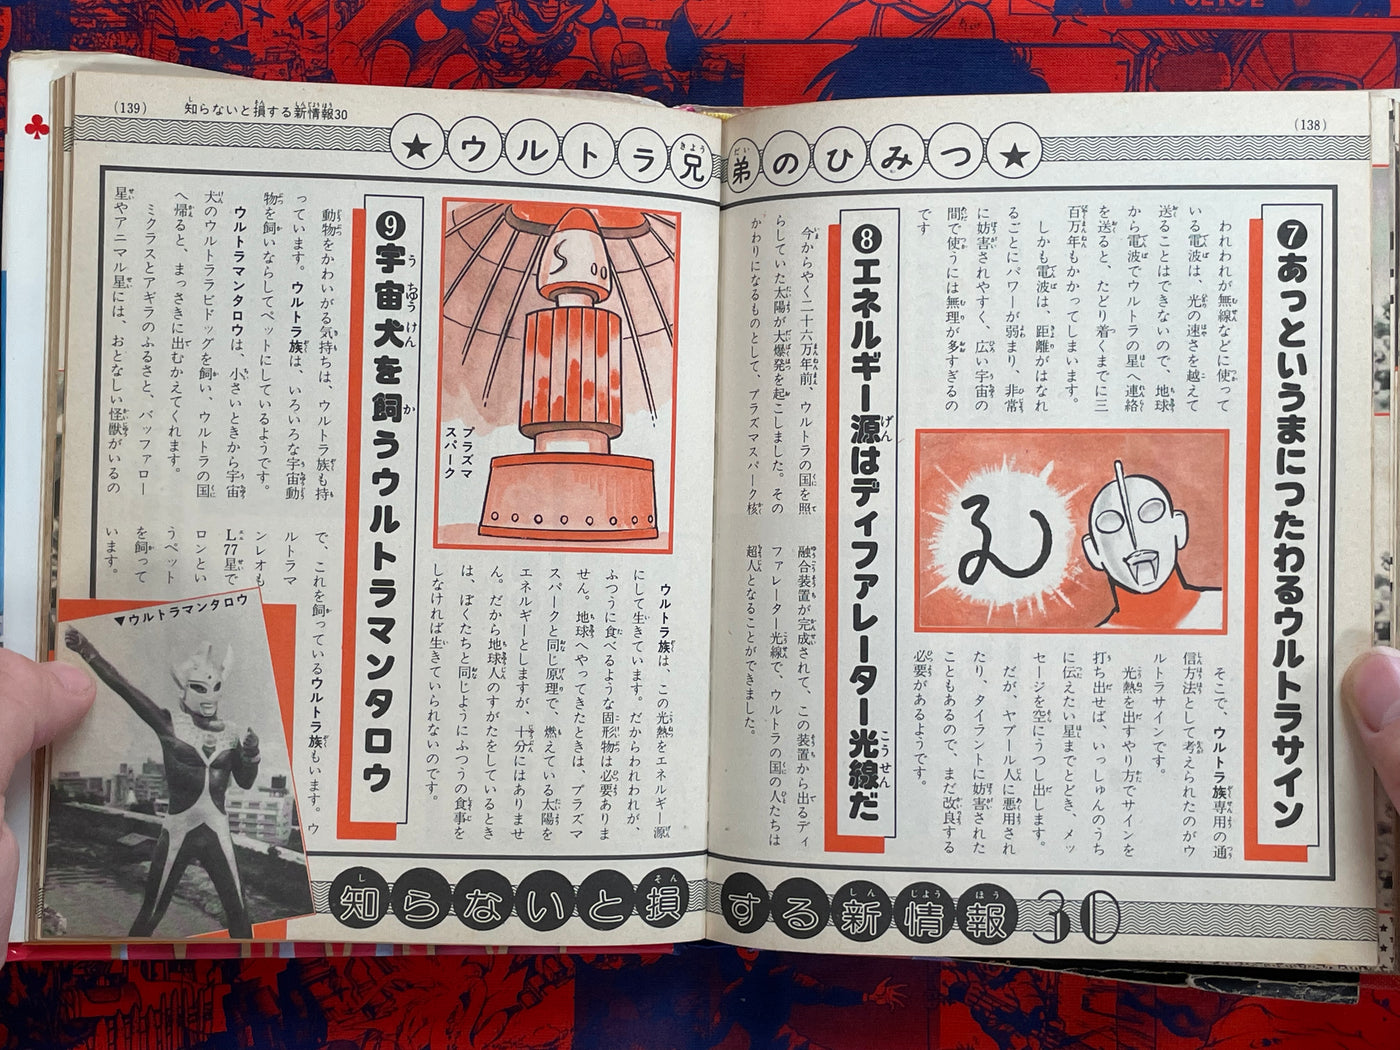 (138)
(139)
知らないと損する新情報30
★ウルトラ兄弟のひみつ★
❼あっというまにつたわるウルトラサイン
われわれが無線などに使って
いる電波は、光の速さを越えて
送ることはできないので、地球
から電波でウルトラの星へ連絡
を送ると、たどり着くまでに三
百万年もかかってしまいます。
しかも電波は、距離がはなれ
るごとにパワーが弱まり、非常
に妨害されやすく、広い宇宙の
間で使うには無理が多すぎるの
です
そこで、ウルトラ族専用の通
信方法として考えられたのがウ
ルトラサインです。
光熱を出すやり方でサインを
打ち出せば、いっしゅんのうち
に伝えたい星までとどき、メッ
セージを空にうつし出します。
だが、ヤプール人に悪用され
たり、タイラントに妨害された
こともあるので、まだ改良する
必要があるようです。
❽エネルギー源はディファレーター光線だ
今からやく二十六万年前、ウルトラの国を照
らしていた太陽が大爆発を起こしました。その
かわりになるものとして、プラズマスパーク核
融合装置が完成されて、この装置から出るディ
ファレーター光線で、ウルトラの国の人たちは
超人となることができました。
プラズマ
スパーク
ウルトラ族は、この光熱をエネルギー源
にして生きています。だからわれわれが、
ふつうに食べるような固形物は必要ありま
せん。地球へやってきたときは、プラズマ
スパークと同じ原理で、燃えている太陽を
エネルギーとしますが、十分にはありませ
ん。だから地球人のすがたをしているとき
は、ぼくたちと同じようにふつうの食事を
しなければ生きていられないのです。
❾宇宙犬を飼うウルトラマンタロウ
動物をかわいがる気持ちは、ウルトラ族も持
っています。ウルトラ族は、いろいろな宇宙動
物を飼いならしてペットにしているようです。
ウルトラマンタロウは、小さいときから宇宙
犬のウルトララビドッグを飼い、ウルトラの国
へ帰ると、まっさきに出むかえてくれます。
ミクラスとアギラのふるさと、バッファロー
星やアニマル星には、おとなしい怪獣がいるの
で、これを飼っているウルトラ族もいます。ウ
ルトラマ
ンレオも
L77星で
ロンとい
うペット
を飼って
います。
▼ウルトラマンタロウ
知らないと損する新情報30